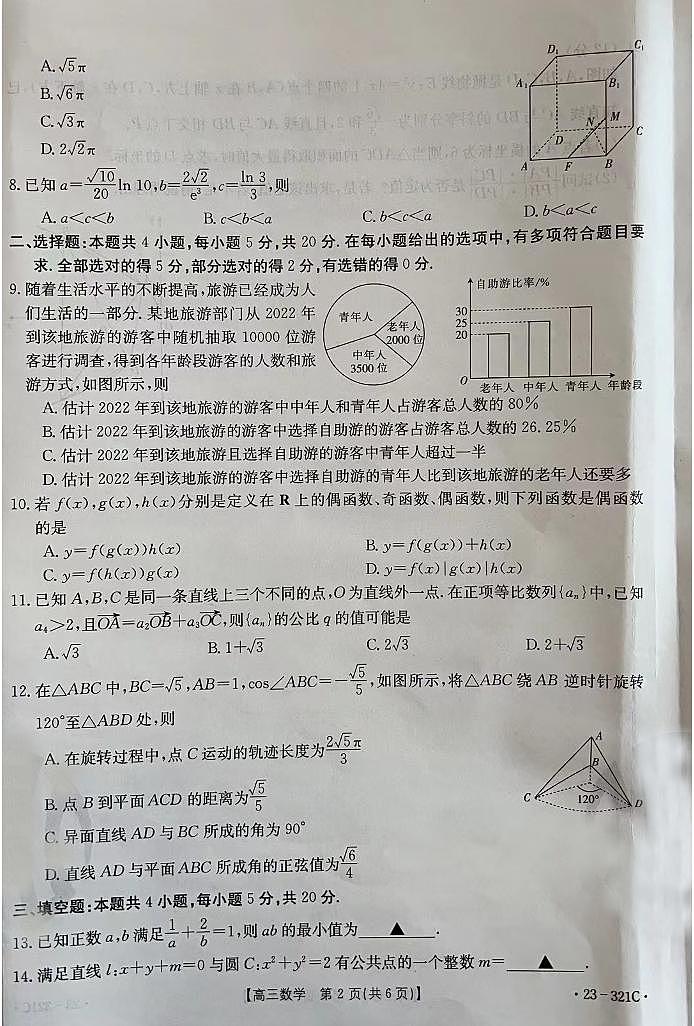 A. √5π
B. √6π
C. √3π
D. 2√2π
D₁ C₁
A₁ B₁
M
N
D C
A F B
8. 已知 a=√10/20 ln 10, b=2√2/e³, c=ln 3/3, 则
A. a<c<b B. c<b<a C. b<c<a D. b<a<c
二、选择题:本题共 4 小题,每小题 5 分,共 20 分. 在每小题给出的选项中,有多项符合题目要
求. 全部选对的得 5 分,部分选对的得 2 分,有选错的得 0 分.
9. 随着生活水平的不断提高,旅游已经成为人
们生活的一部分. 某地旅游部门从 2022 年
到该地旅游的游客中随机抽取 10000 位游
客进行调查,得到各年龄段游客的人数和旅
游方式,如图所示,则
青年人
老年人
2000 位
中年人
3500 位
自助游比率/%
30
25
20
O 老年人 中年人 青年人 年龄段
A. 估计 2022 年到该地旅游的游客中中年人和青年人占游客总人数的 80%
B. 估计 2022 年到该地旅游的游客中选择自助游的游客占游客总人数的 26.25%
C. 估计 2022 年到该地旅游且选择自助游的游客中青年人超过一半
D. 估计 2022 年到该地旅游的游客中选择自助游的青年人比到该地旅游的老年人还要多
10. 若 f(x),g(x),h(x)分别是定义在 R 上的偶函数、奇函数、偶函数,则下列函数是偶函数
的是
A. y=f(g(x))h(x) B. y=f(g(x))+h(x)
C. y=f(h(x))g(x) D. y=f(x)|g(x)|h(x)
11. 已知 A,B,C 是同一条直线上三个不同的点,O 为直线外一点. 在正项等比数列{aₙ}中,已知
a₄>2,且OA=a₂OB+a₃OC,则{aₙ}的公比 q 的值可能是
A. √3 B. 1+√3 C. 2√3 D. 2+√3
12. 在△ABC 中,BC=√5,AB=1,cos∠ABC=-√5/5,如图所示,将△ABC 绕 AB 逆时针旋转
120°至△ABD 处,则
A. 在旋转过程中,点 C 运动的轨迹长度为2√5π/3
B. 点 B 到平面 ACD 的距离为√5/5
C. 异面直线 AD 与 BC 所成的角为 90°
D. 直线 AD 与平面 ABC 所成角的正弦值为√6/4
A
B
C 120° D
三、填空题:本题共 4 小题,每小题 5 分,共 20 分.
13. 已知正数 a,b 满足1/a+2/b=1,则 ab 的最小值为 ▲ .
14. 满足直线 l:x+y+m=0 与圆 C:x²+y²=2 有公共点的一个整数 m= ▲ .
【高三数学 第 2 页(共 6 页)】 ·23-321C·